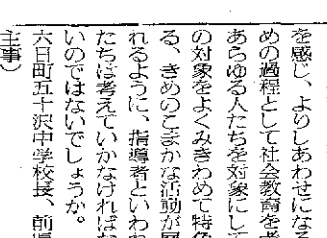 を感じ、よりしあわせになる
めの過程として社会教育を考
あらゆる人たちを対象にして
の対象をよくみきわめて特色
る、きめのこまかな活動が展
れるように、指導者といわれ
たちは考えていかなければな
いのではないでしょうか。
六日町五十沢中学校長、前県
主事）